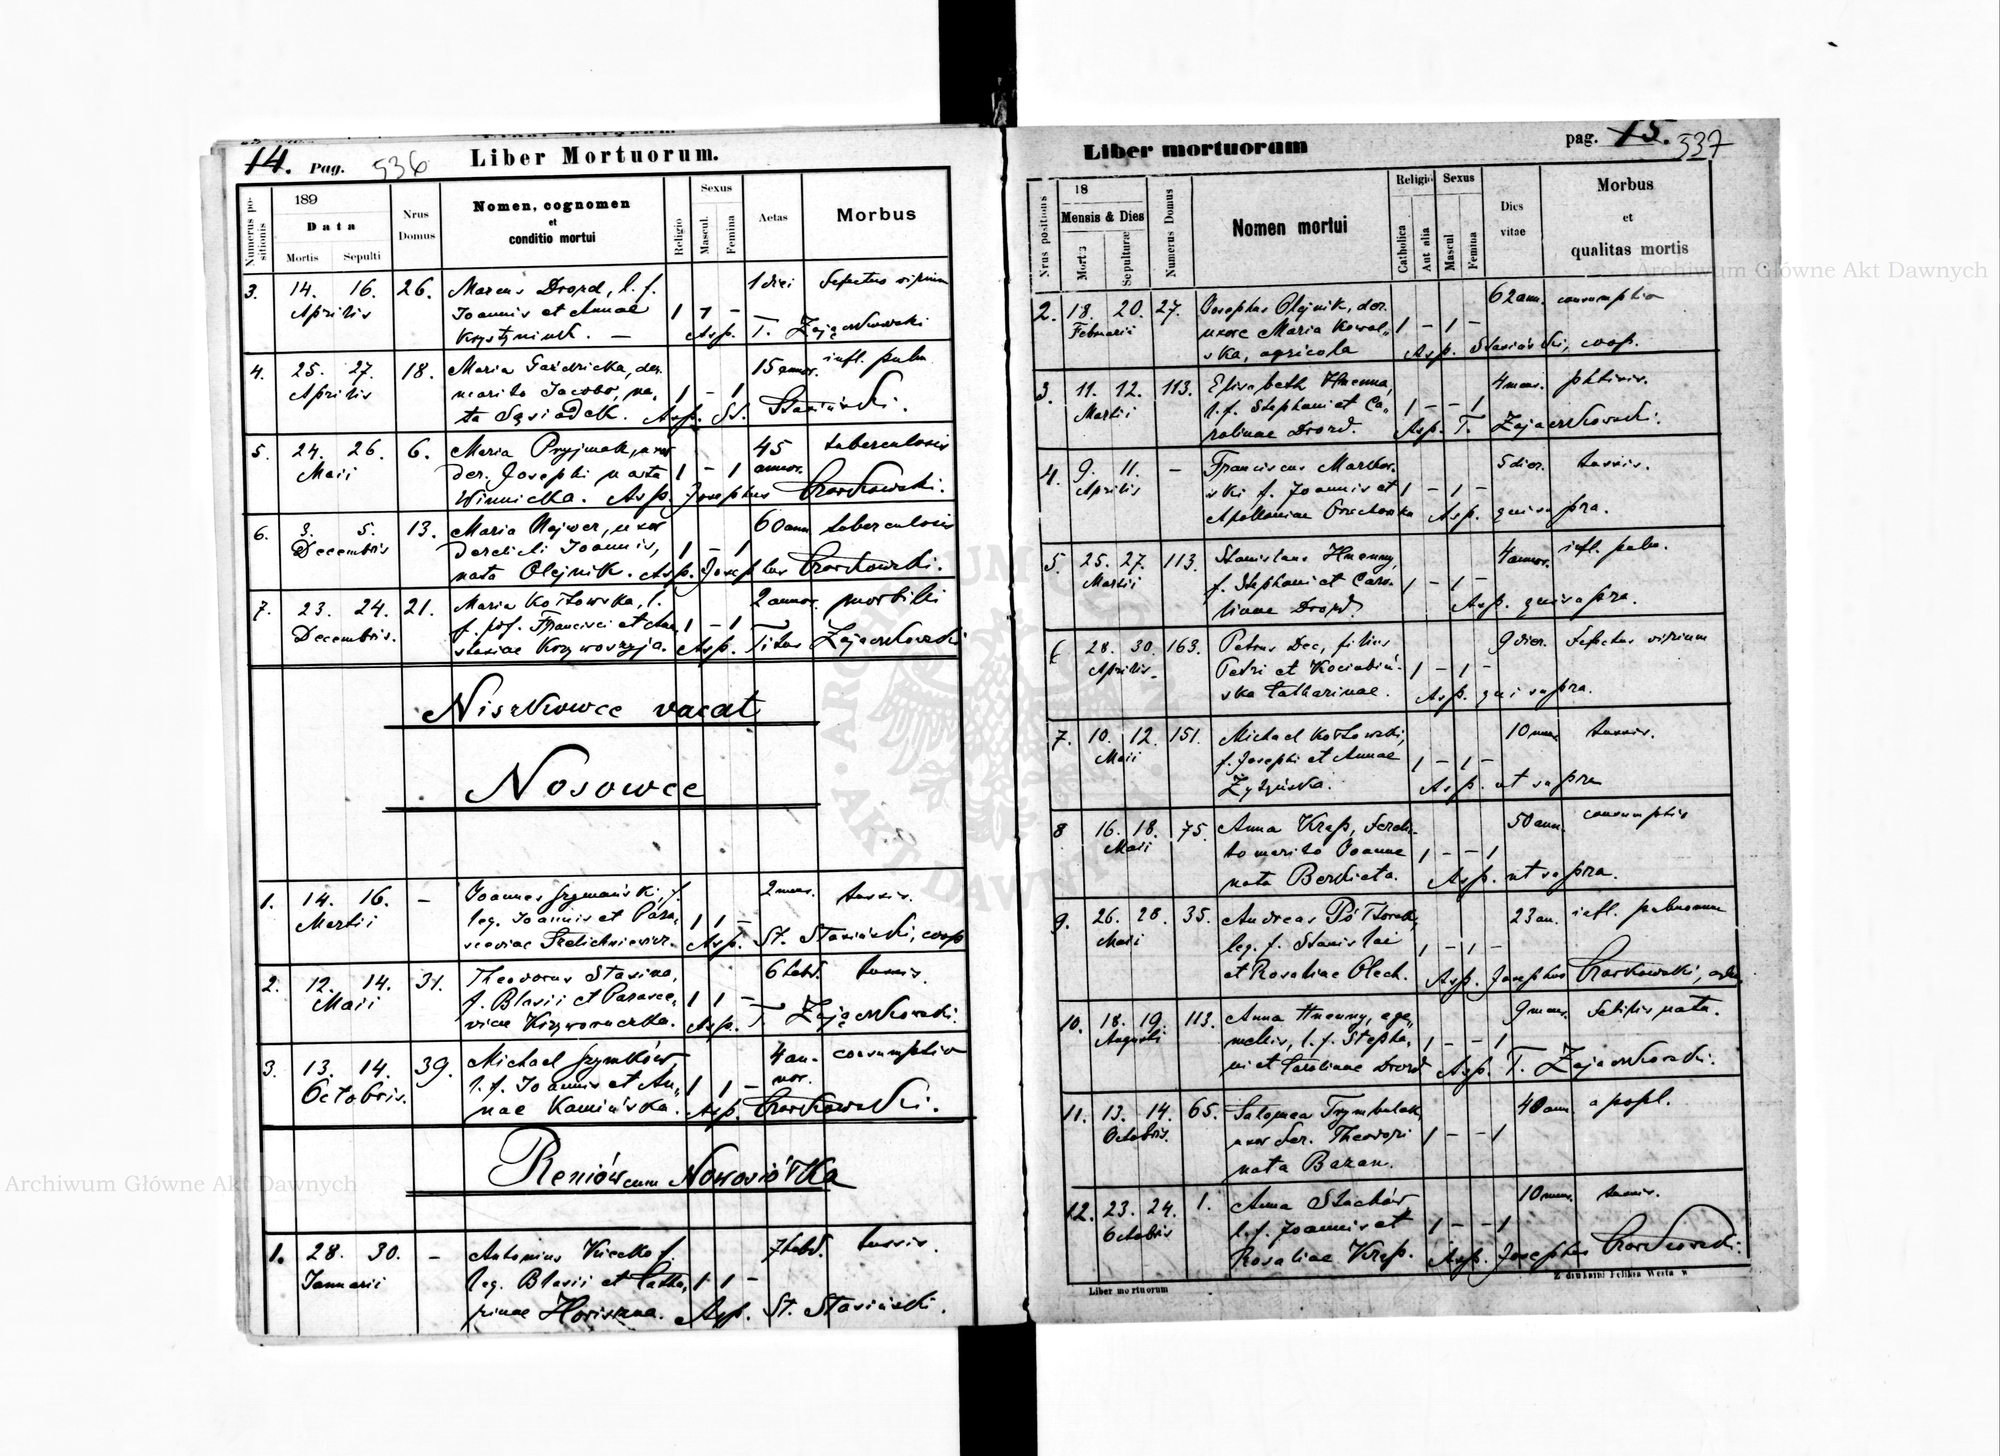 14. Pag. 536 Liber Mortuorum.
Numerus positionis
189
Data
Mortis Sepulti
Nrus Domus
Nomen, cognomen
et
conditio mortui
Religio
Sexus
Mascul. Femina
Aetas
Morbus
3. 14. 16. 26. Marcus Drozd, l. f. 1 diei defectus virium
Aprilis Joannis et Annae 1 1 -
Krystyniuk. — Asp. T. Zajączkowski
4. 25. 27. 18. Maria der. 15 annor. infl. pulm.
Aprilis marito Jacobo, na, 1 - 1
ta Sąsiadek. Asp. St. Stasiński.
5. 24. 26. 6. Maria Pryjmak, uxor 45 tuberculosis
Maii der. Josephi nata 1 - 1 annor.
Winnicka. Asp. Josephus Czarkowski.
6. 3. 5. 13. Maria Majwer, uxor 60 ann. tuberculosis
Decembris derelicti Joannis, 1 - 1
nata Olejnik. Asp. Josephus Czarkowski.
7. 23. 24. 21. Maria Kozłowska, l. 2 annor. morbilli
Decembris. f. Francisci et Ana, 1 - 1
stasiae Krzywoszyja. Asp. Titus Zajączkowski
Niszkowce vacat
Nosowce
1. 14. 16. - Joannes Szymański, f. 2 mens. tussis.
Martii leg. Joannis et Paras, 1 1 -
ceviae Asp. St. Stasiński, coop
2. 12. 14. 31. Theodorus Stasina, 6 hebd. tussis.
Maii f. Blasii et Parasce, 1 1 -
viae Asp. T. Zajączkowski.
3. 13. 14. 39. Michael Szymków, 4 an- consumptio
Octobris. l. f. Joannis et An, 1 1 - nor.
nae Kamińska. Asp. Czarkowski.
Reniów cum Nowosiółka
1. 28. 30. - Antonius f. 7 hebd. tussis.
Januarii leg. Blasii et Catha, 1 1 -
rinae Asp. St. Stasiński.
Liber mortuorum pag. 15. 537
Nrus positionis
18
Mensis & Dies
Mortis Sepulturæ
Numerus Domus
Nomen mortui
Religio
Catholica Aut alia
Sexus
Mascul Femina
Dies
vitae
Morbus
et
qualitas mortis
2. 18. 20. 27. Josephus Olejnik, der. 62 ann. consumptio
Februarii uxore Maria Kowal, 1 - 1 -
ska, agricola Asp. Stasiński, coop.
3. 11. 12. 113. Elisabeth Hnenna, 4 mens. phtisis.
Martii l. f. Stephani et Ca, 1 - - 1
rolinae Drozd. Asp. T. Zajączkowski.
4. 9. 11. - Franciscus 5 dier. tussis.
Aprilis ski f. Joannis et 1 - 1 -
Apolloniae Asp. qui supra.
5. 25. 27. 113. Stanislaus Hnenny, 4 annor. infl. pulm.
Martii f. Stephani et Caro, 1 - 1 -
linae Drozd Asp. qui supra.
6 28. 30. 163. Petrus Dec, filius 9 dier. defectus virium
Aprilis Petri et Kociubiń- 1 - 1 -
ska Catharinae. Asp. qui supra.
7. 10. 12. 151. Michael Kozłowski, 10 mens tussis.
Maii f. Josephi et Annae 1 - 1 -
Żyżyńska. Asp. ut supra
8 16. 18. 75. Anna Kreps, derelic- 50 ann. consumptio
Maii to marito Joanne 1 - - 1
nata Asp. ut supra.
9. 26. 28. 35. Andreas Półtorak, 23 an. infl. pulmonum
Maii leg. f. Stanislai 1 - 1 -
et Rosaliae Olech. Asp. Josephus Czarkowski,
10. 18. 19. 113. Anna Hnenny, e ge, 9 mens. debilis nata.
Augusti mellis, l. f. Stepha, 1 - - 1
ni et Carolinae Drozd Asp. T. Zajączkowski.
11. 13. 14. 65. Salomea Trymbulak, 40 ann. apopl.
Octobris. uxor der. Theodori 1 - - 1
nata Baran.
12. 23. 24. 1. Anna Stachów 10 mens. tussis.
Octobris l. f. Joannis et 1 - - 1
Rosaliae Kreps. Asp. Josephus Czarkowski.
Liber mortuorum
Z drukarni Feliksa Westa w
Archiwum Główne Akt Dawnych
Archiwum Główne Akt Dawnych
ARCHIWUM GŁÓWNE AKT DAWNYCH